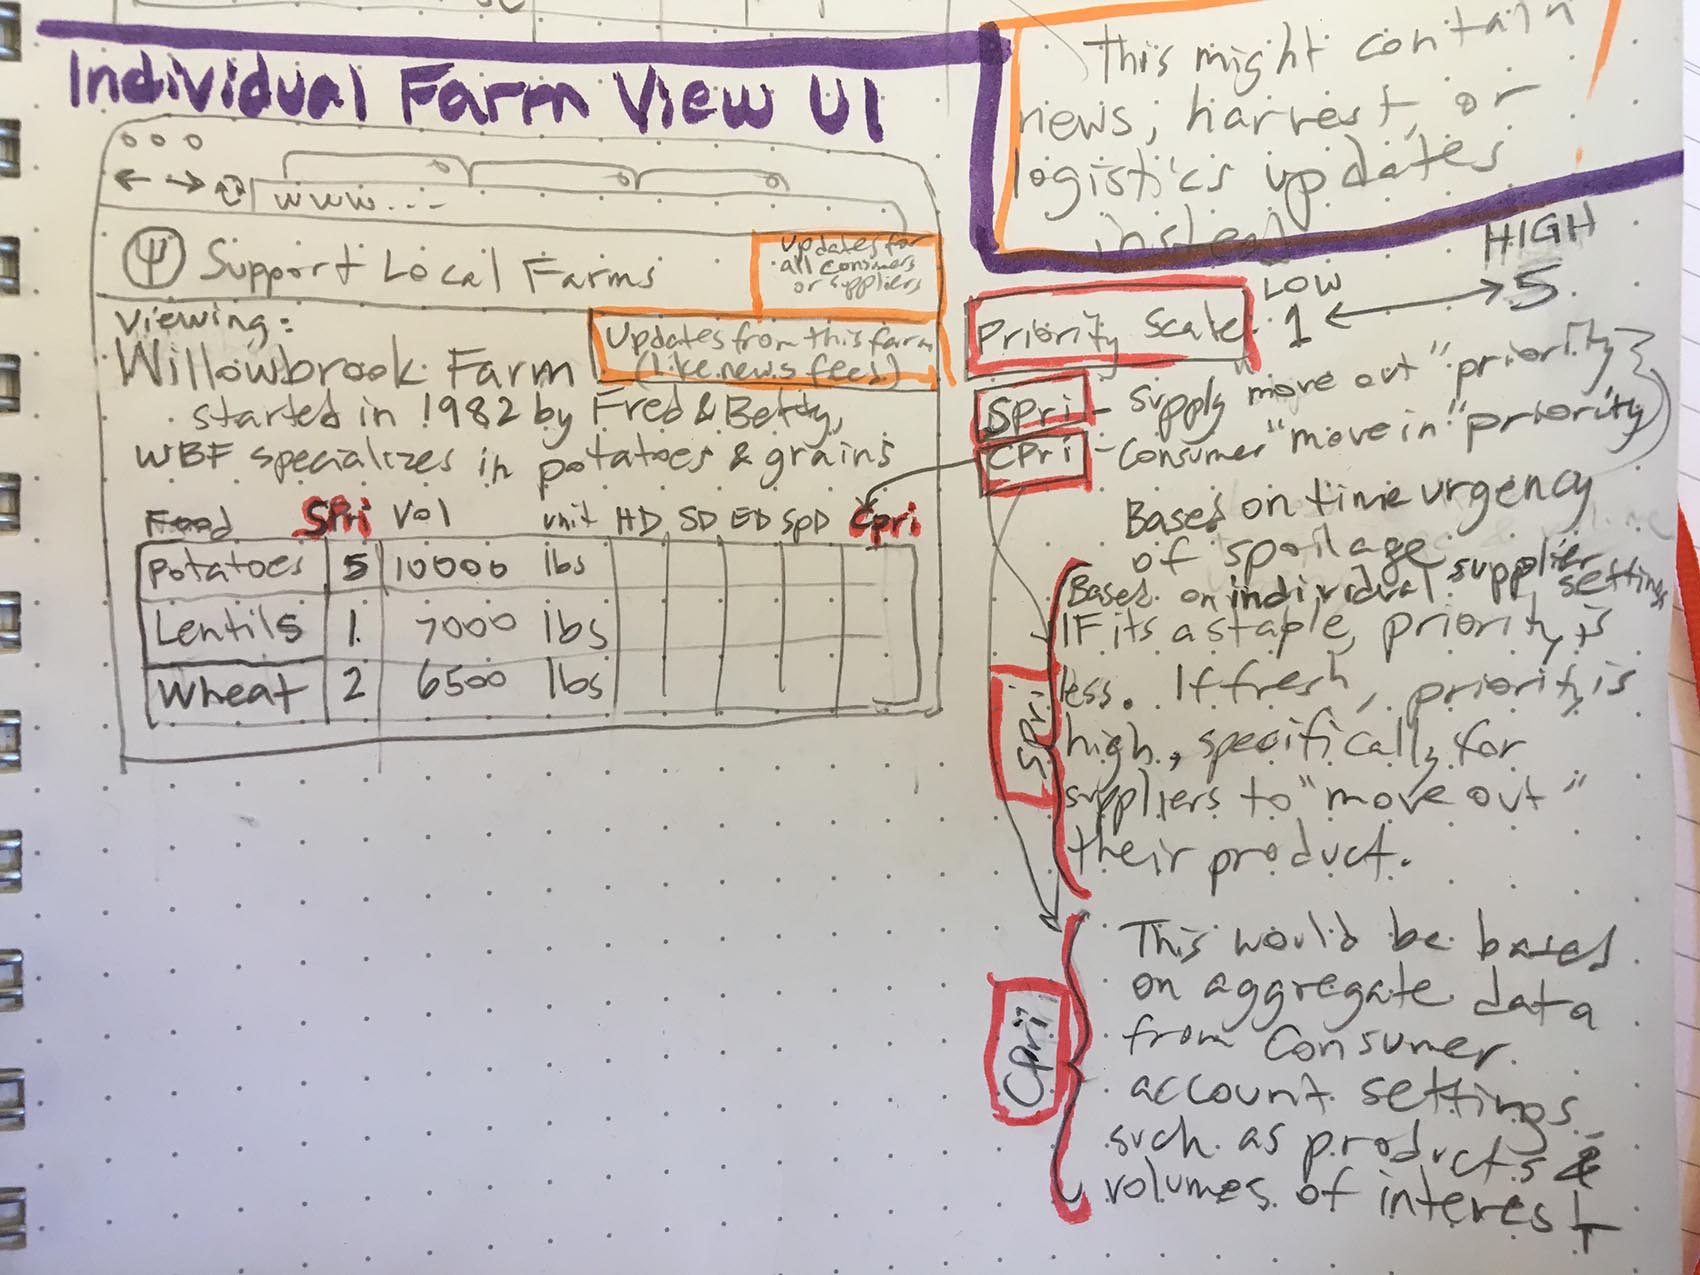 Individual Farm View UI
www...
Support Local Farms
Updates for
all consumers
or suppliers
Viewing:
Willowbrook Farm
Updates from this farm
(like news feed)
started in 1982 by Fred & Betty,
WBF specializes in potatoes & grains
Food SPri Vol unit HD SD ED SpD Cpri
Potatoes 5 10000 lbs
Lentils 1 7000 lbs
Wheat 2 6500 lbs
This might contain
news, harvest, or
logistics updates
instead
Priority Scale LOW 1 HIGH 5
SPri - Supply move out "priority
CPri - Consumer "move in" priority
Based on time urgency
of spoilage
Based on individual supplier settings
IF its a staple, priority is
less. If fresh, priority is
high, specifically for
suppliers to "move out"
their product.
SPri
This would be based
on aggregate data
from Consumer
account settings
such as products &
volumes of interest
Cpri